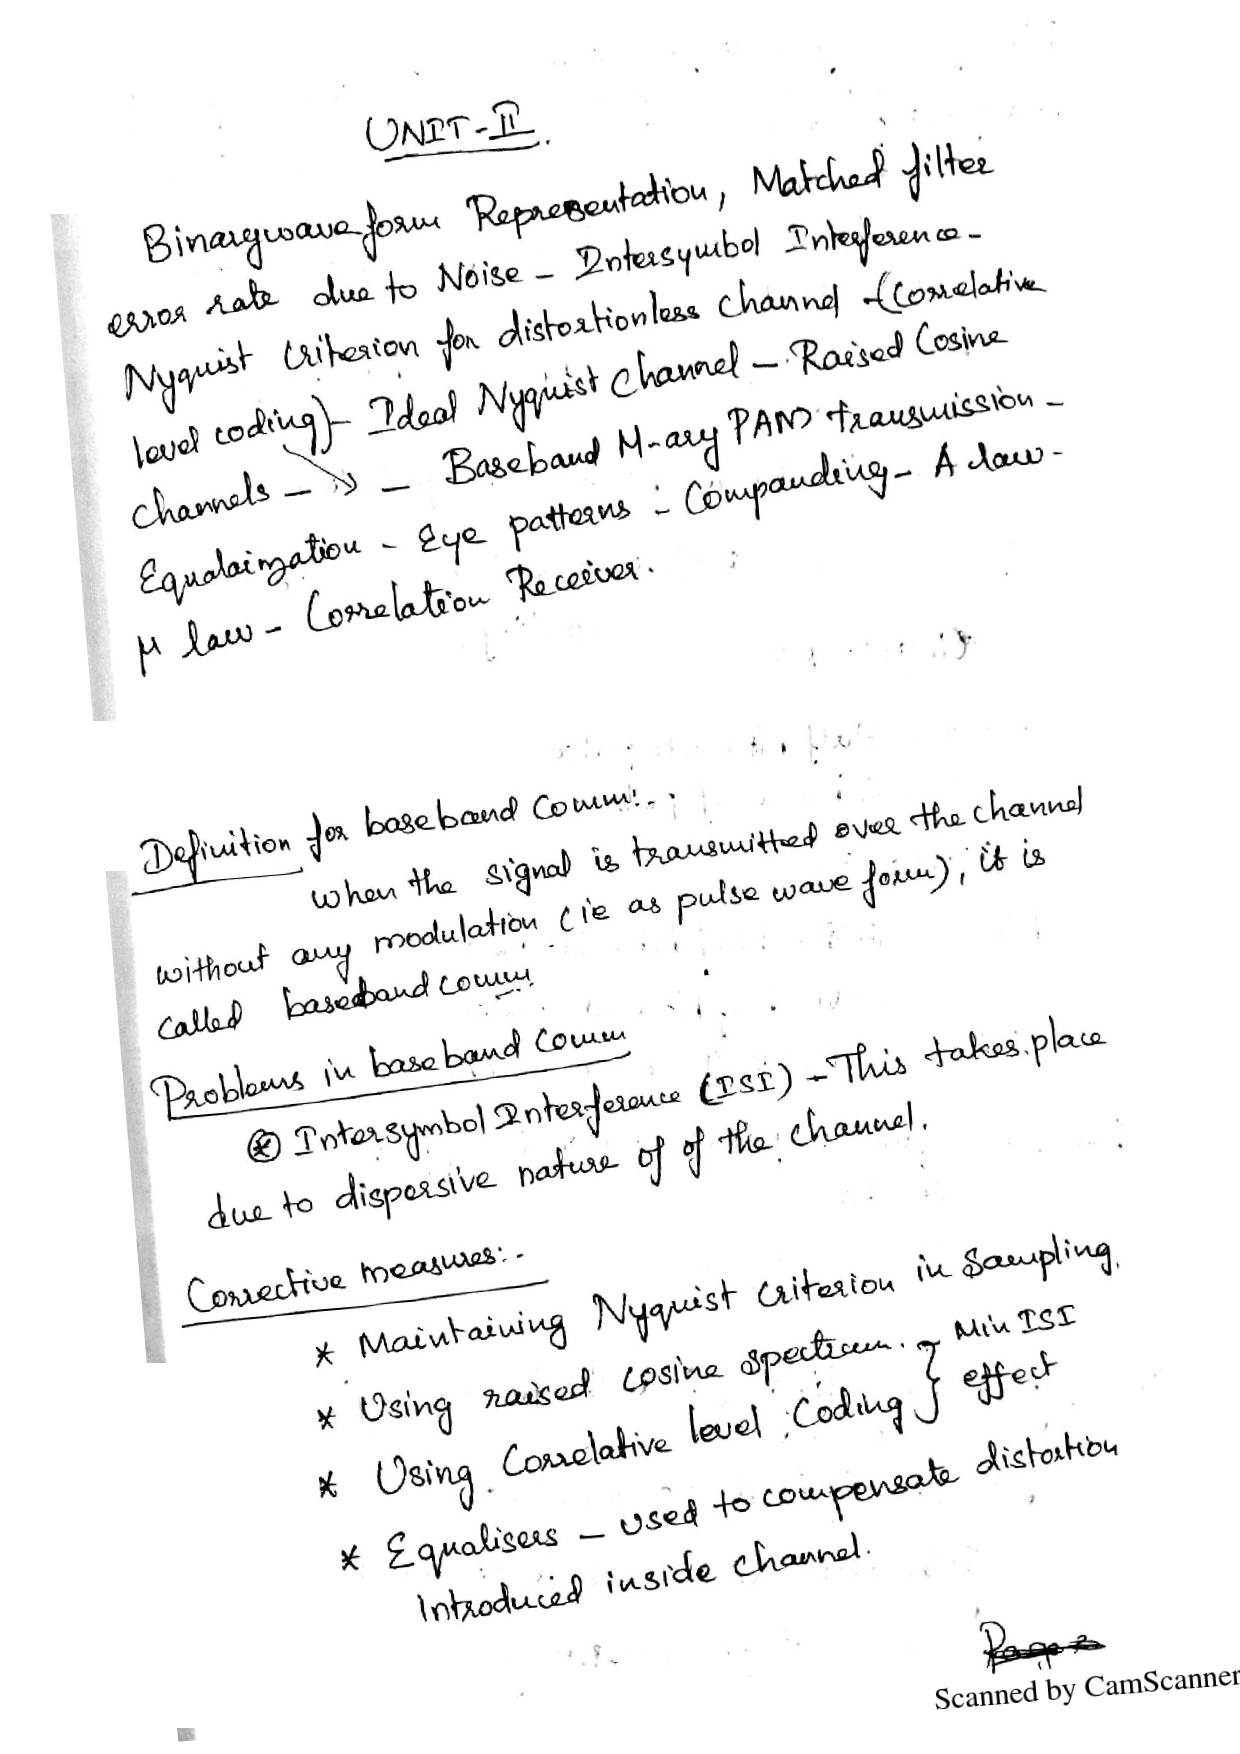 UNIT-II.
Binarywave form Representation, Matched filter
error rate due to Noise - Intersymbol Interference -
Nyquist Criterion for distortionless channel - (Correlative
level coding) - Ideal Nyquist Channel - Raised Cosine
Channels - - Baseband M-ary PAM transmission -
Equalaization - Eye patterns - Companding - A law -
μ law - Correlation Receiver.
Definition for baseband Comm:-
When the signal is transmitted over the channel
without any modulation (ie as pulse wave form), it is
called baseband comm
Problems in baseband Comm
* Intersymbol Interference (ISI) - This takes place
due to dispersive nature of of the channel.
Corrective measures:-
* Maintaining Nyquist Criterion in Sampling.
* Using raised cosine spectrum. } Min ISI
* Using Correlative level Coding } effect
* Equalisers - used to compensate distortion
Introduced inside channel.
Scanned by CamScanner